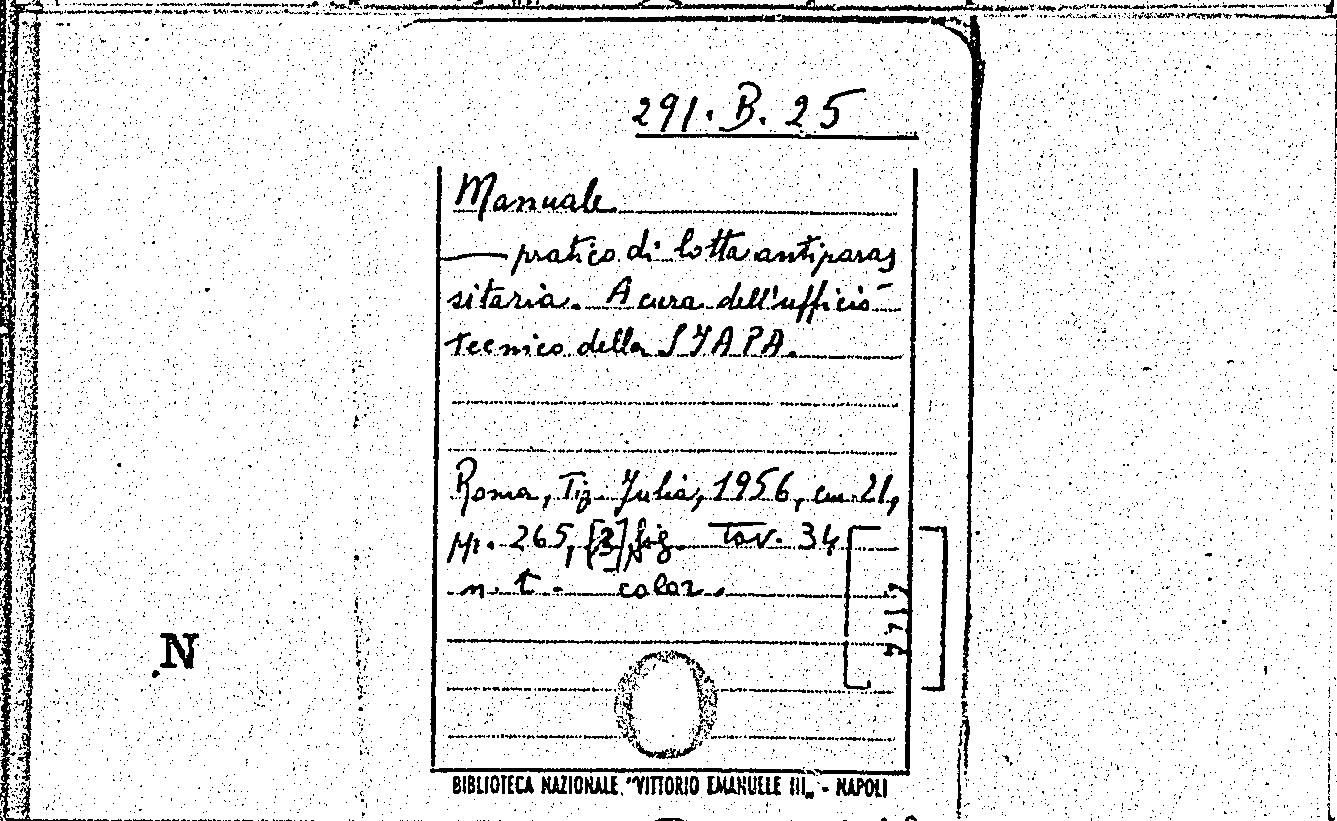 291. B. 25
Manuale
— pratico di lotta antiparas
sitaria. A cura dell'ufficio
tecnico della SIAPA.
Roma, Tip. Julia, 1956, cm. 21,
pp. 265, [3] fig. Tav. 34
n. t. color.
N
BIBLIOTECA NAZIONALE "VITTORIO EMANUELE III„ - NAPOLI